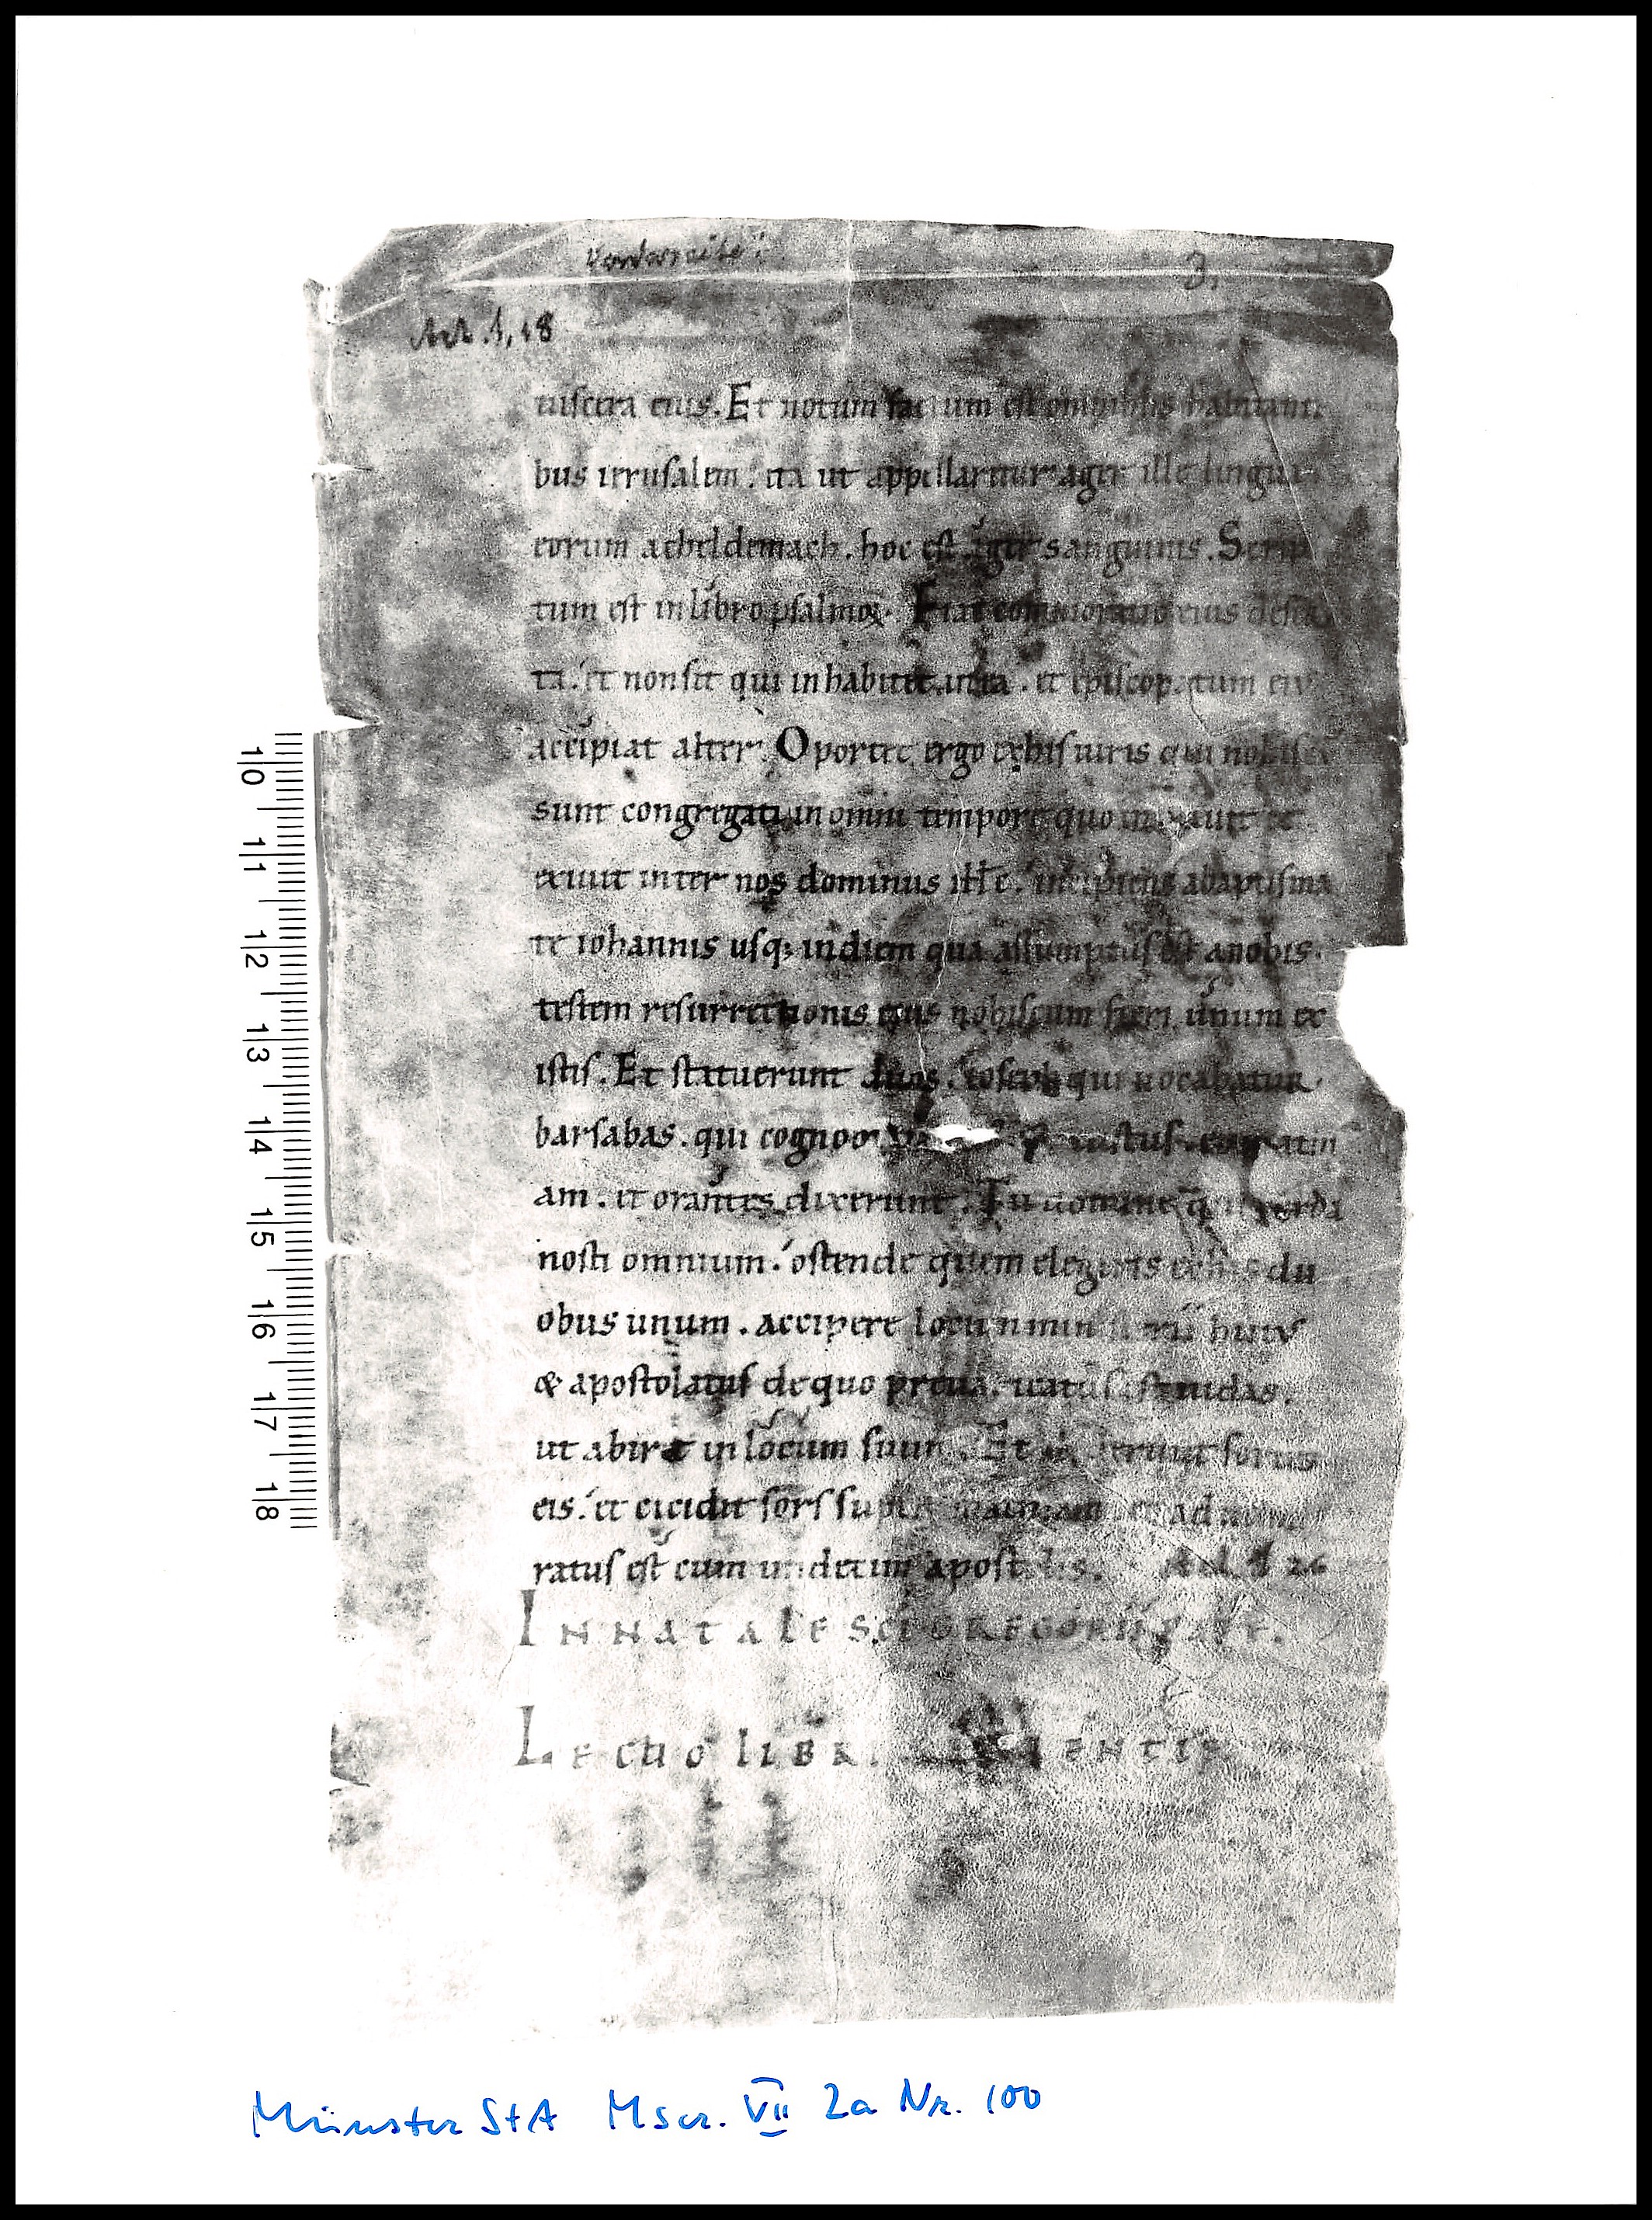 Vorderseite:
3.
Act. 1, 18
uiscera eius. Et notum factum est omnibus habitanti
bus ierusalem. ita ut appellaretur ager ille lingua
eorum acheldemach. hoc est. ager sanguinis. Scrip
tum est in libro psalmoꝝ. Fiat commoratio eius deser
ta. et non sit qui inhabitet in ea. et episcopatum eiꝰ
accipiat alter. Oportet ergo ex his uiris qui nobis
sunt congregati in omni tempore quo et
exiuit inter nos dominus incipiens a baptisma
te iohannis usq; in diem qua assumptus est a nobis.
testem resurrectionis eius nobiscum fieri unum ex
istis. Et statuerunt duos. ioseph qui uocabatur
barsabas. qui iustus.
am. et orantes dixerunt. Tu domine qui corda
nosti omnium. ostende quem elegeris ex his du
obus unum. accipere locum huiꝰ
& apostolatus de quo iudas.
ut abiret in locum suum. Et sortes
eis. et cecidit sors
ratus est cum undecim apostolis. Act 1 26
IN NATALE SCI GREGORII PAPE.
LECTIO LIBRI SAPIENTIE
10 11 12 13 14 15 16 17 18
Münster StA Mscr. VII 2a Nr. 100